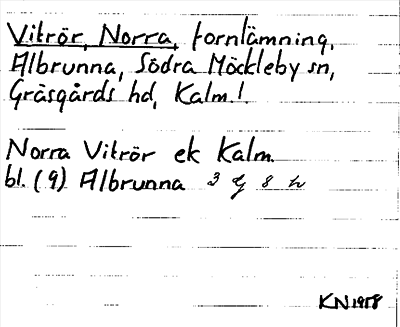 Vitrör, Norra, fornlämning,
Albrunna, Södra Möckleby sn,
Gräsgårds hd, Kalm. l.
Norra Vitrör ek Kalm.
bl. (9) Albrunna 3 g 8 h
KN 1958